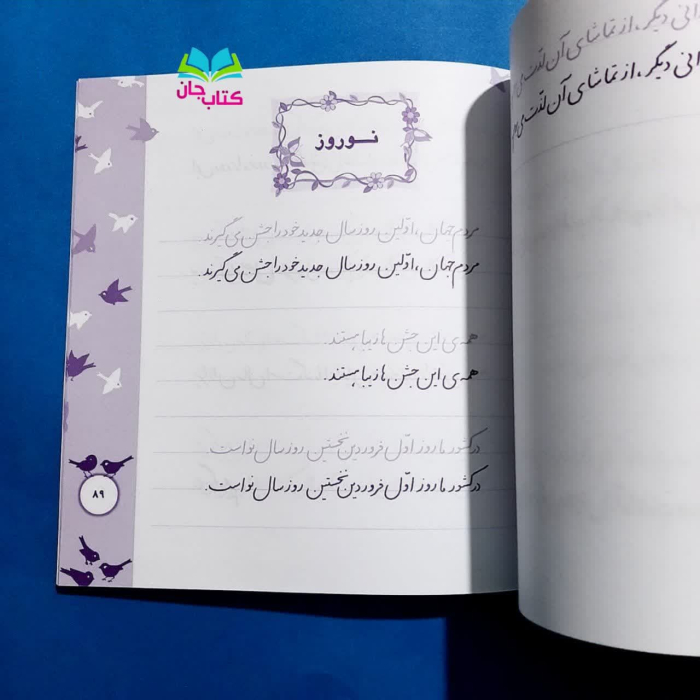 کتاب جان
انی دیگر، از تماشای آن لذّت می
انی دیگر، از تماشای آن لذّت می
نوروز
مردم جهان، اوّلین روز سال جدید خود را جشن می‌گیرند.
مردم جهان، اوّلین روز سال جدید خود را جشن می‌گیرند.
همه‌ی این جشن‌ها زیبا هستند.
همه‌ی این جشن‌ها زیبا هستند.
در کشور ما روز اوّل فروردین نخستین روز سال نو است.
در کشور ما روز اوّل فروردین نخستین روز سال نو است.
۸۹